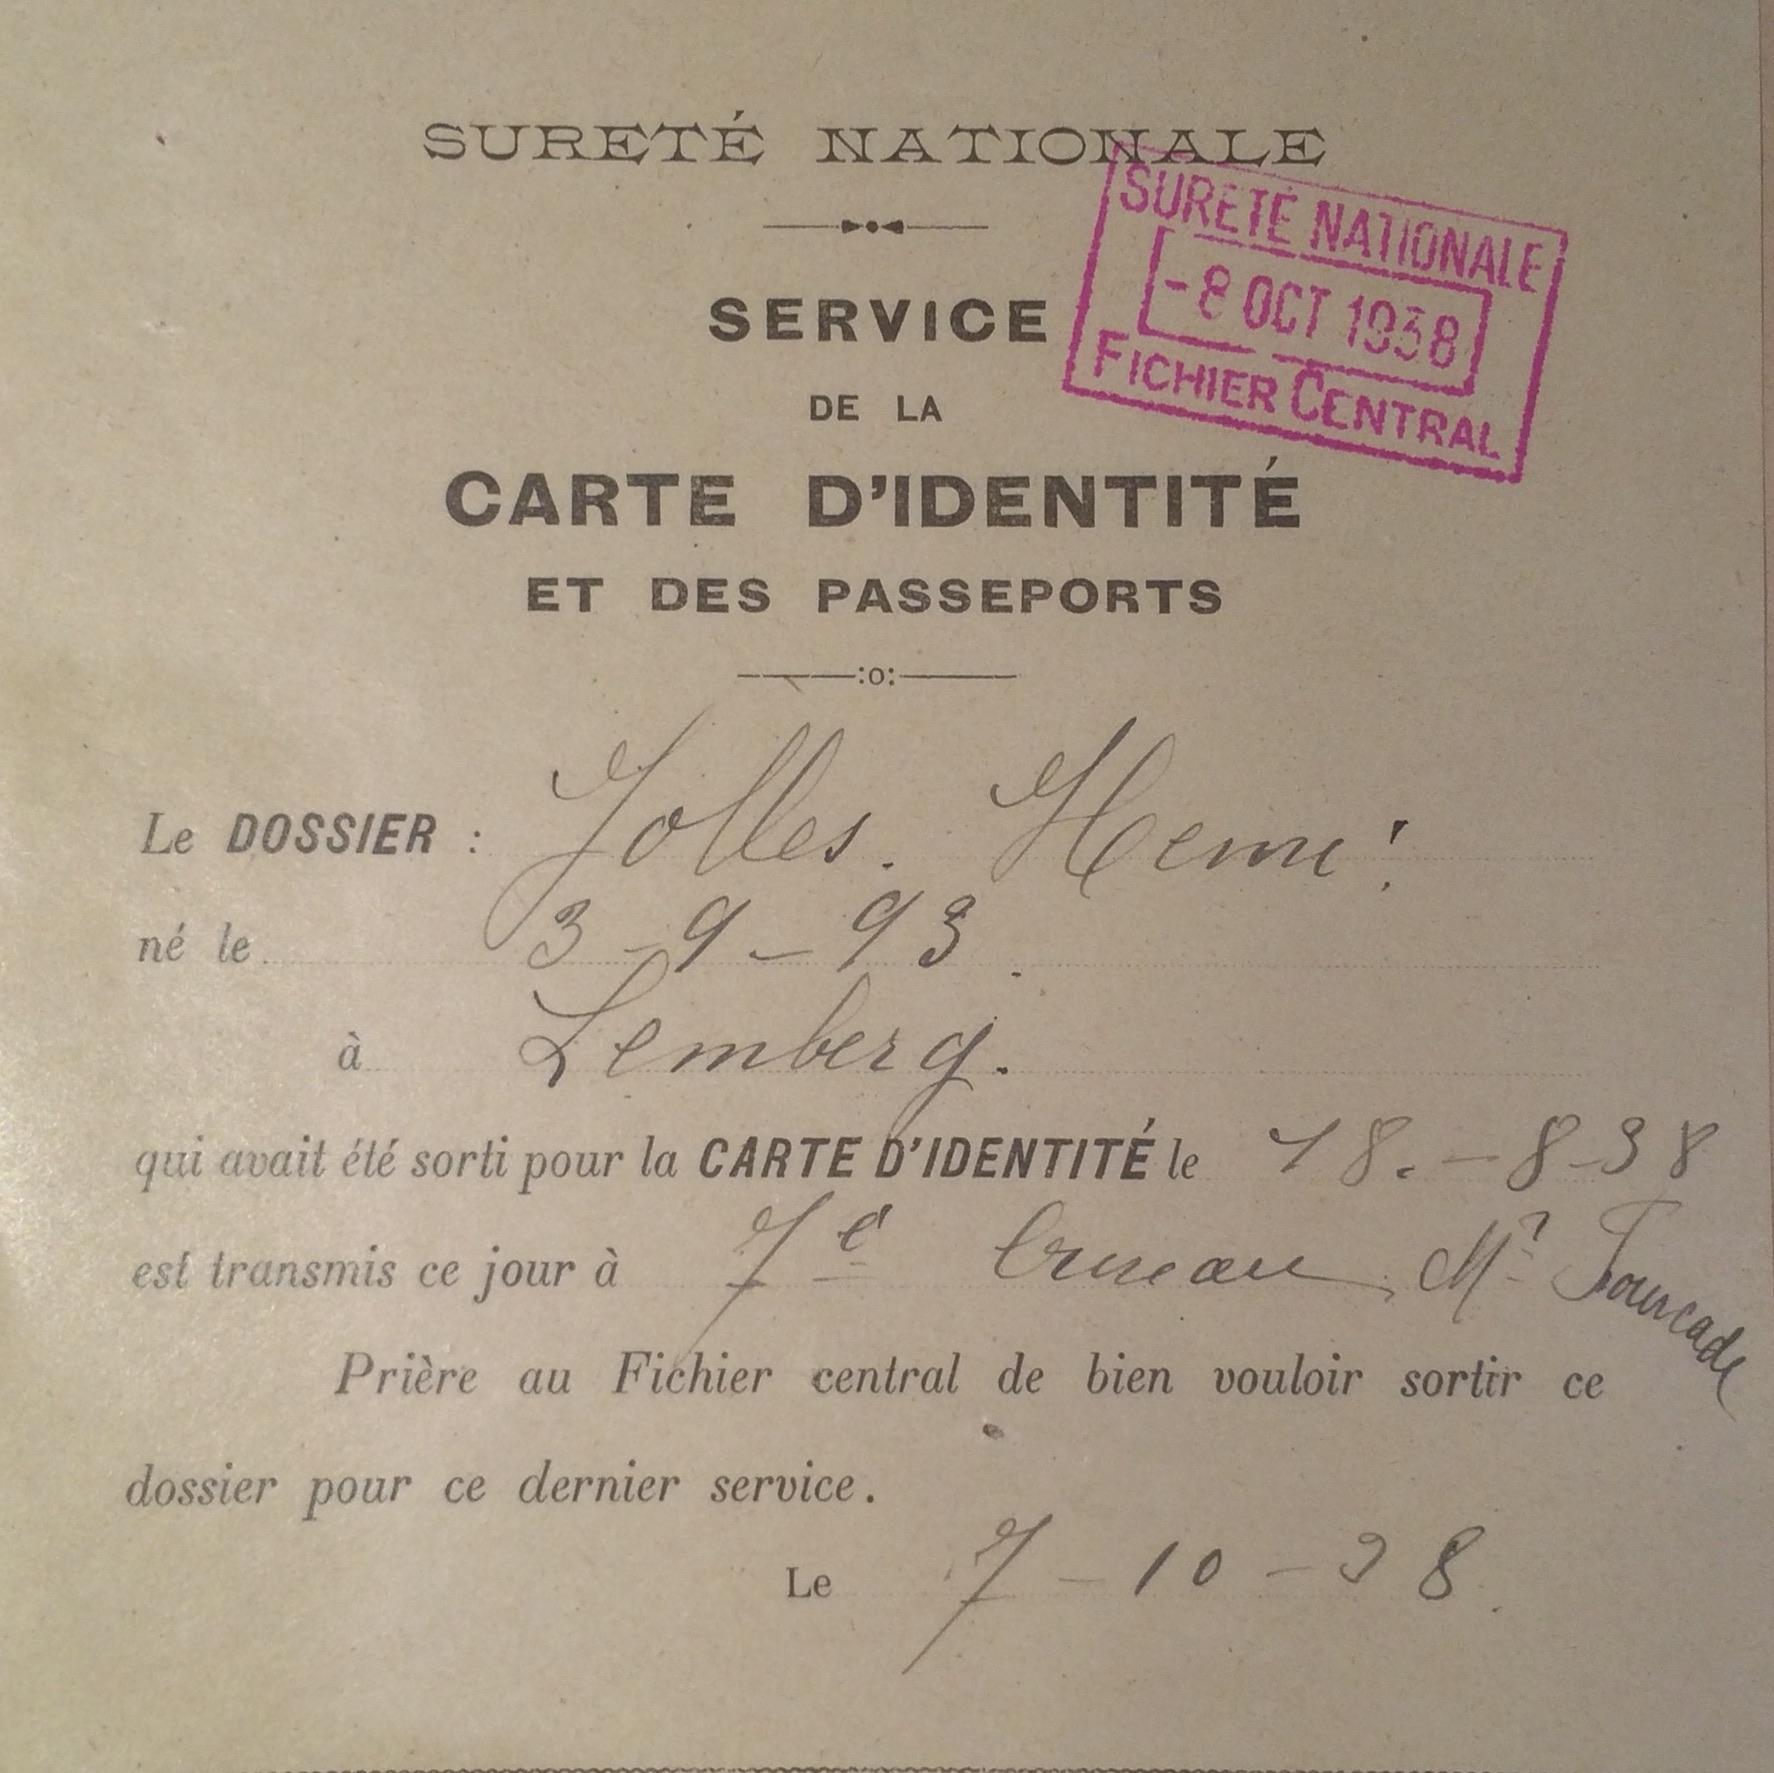 SURETÉ NATIONALE
SURETÉ NATIONALE
-8 OCT 1938
FICHIER CENTRAL
SERVICE
DE LA
CARTE D'IDENTITÉ
ET DES PASSEPORTS
:o:
Le DOSSIER : Jolles. Henri
né le 3-9-93.
à Lemberg.
qui avait été sorti pour la CARTE D'IDENTITÉ le 18.-8-38
est transmis ce jour à 7e Bureau, Mr Fourcade
Prière au Fichier central de bien vouloir sortir ce
dossier pour ce dernier service.
Le 7-10-38.